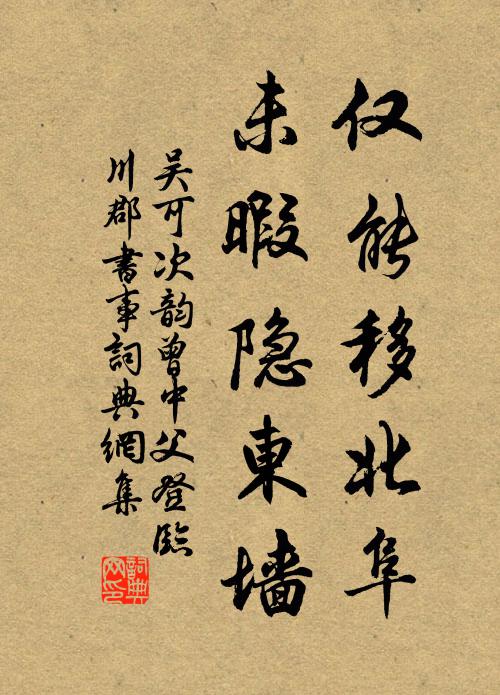 仅能移北阜
未暇隐東墙
吴可次韵曾中父登临
川郡書事詞典網集
詞典
网印